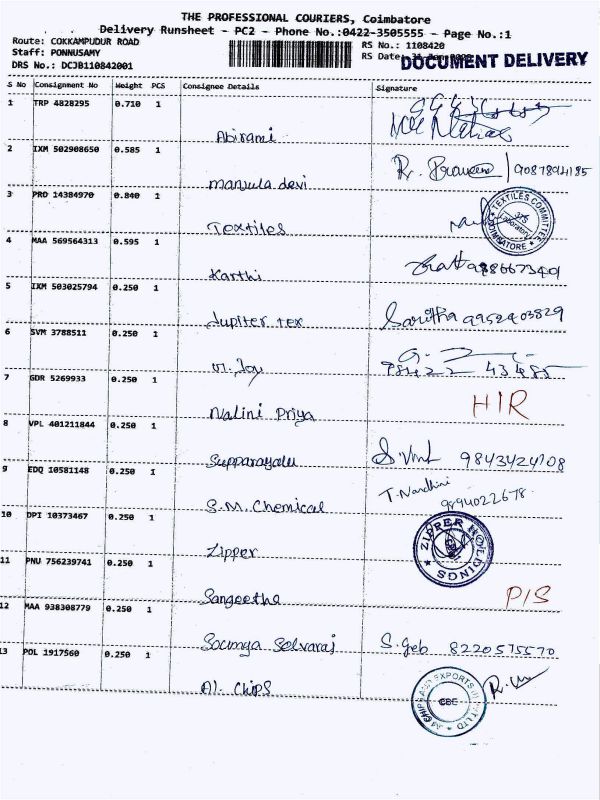 THE PROFESSIONAL COURIERS, Coimbatore
Delivery Runsheet - PC2 - Phone No.:0422-3505555 - Page No.:1
Route: COKKAMPUDUR ROAD RS No.: 1108420
Staff: PONNUSAMY RS Date:
DRS No.: DCJB110842001 DOCUMENT DELIVERY
S No Consignment No Weight PCS Consignee Details Signature
1 TRP 4828295 0.710 1
Abirami
2 IXM 502908650 0.585 1 R. Praveen / 9087894185
Manjula devi
3 PRD 14384970 0.840 1 TEXTILES COMMITTEE COIMBATORE
Textiles
4 MAA 569564313 0.595 1
Karthi
5 IXM 503025794 0.250 1 Saritha 9952403829
Jupiter tex
6 SVM 3788511 0.250 1
M. Joy
7 GDR 5269933 0.250 1 HIR
Nalini Priya
8 VPL 401211844 0.250 1 9843424108
Supparayalu
9 EDQ 10581148 0.250 1 T. Nandhini 9894022678
S.M. Chemical
10 DPI 10373467 0.250 1 ZIPPER HOLDINGS
Zipper
11 PNU 756239741 0.250 1 P/S
Sangeetha
12 MAA 938308779 0.250 1 S. Geb 8220575570
Sowmya Selvaraj
13 POL 1917560 0.250 1 CBE
A1. Chips